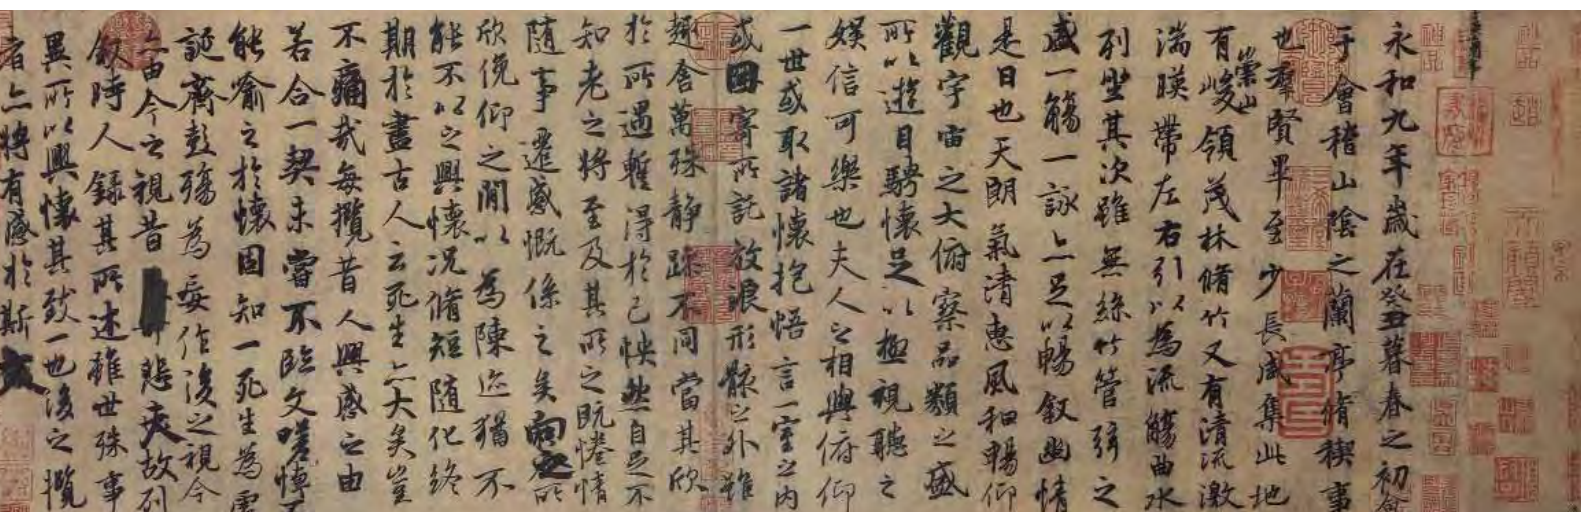 永和九年歲在癸丑暮春之初會
于會稽山陰之蘭亭脩稧事
也羣賢畢至少長咸集此地
有崇山峻領茂林脩竹又有清流激
湍暎帶左右引以為流觴曲水
列坐其次雖無絲竹管弦之
盛一觴一詠亦足以暢敘幽情
是日也天朗氣清惠風和暢仰
觀宇宙之大俯察品類之盛
所以遊目騁懷足以極視聽之
娛信可樂也夫人之相與俯仰
一世或取諸懷抱悟言一室之內
或因寄所託放浪形骸之外雖
趣舍萬殊靜躁不同當其欣
於所遇暫得於己快然自足不
知老之將至及其所之既惓情
隨事遷感慨係之矣向之所
欣俛仰之閒以為陳迹猶不
能不以之興懷況脩短隨化終
期於盡古人云死生亦大矣豈
不痛哉每攬昔人興感之由
若合一契未嘗不臨文嗟悼不
能喻之於懷固知一死生為虛
誕齊彭殤為妄作後之視今
亦由今之視昔悲夫故列
敘時人錄其所述雖世殊事
異所以興懷其致一也後之攬
者亦將有感於斯文